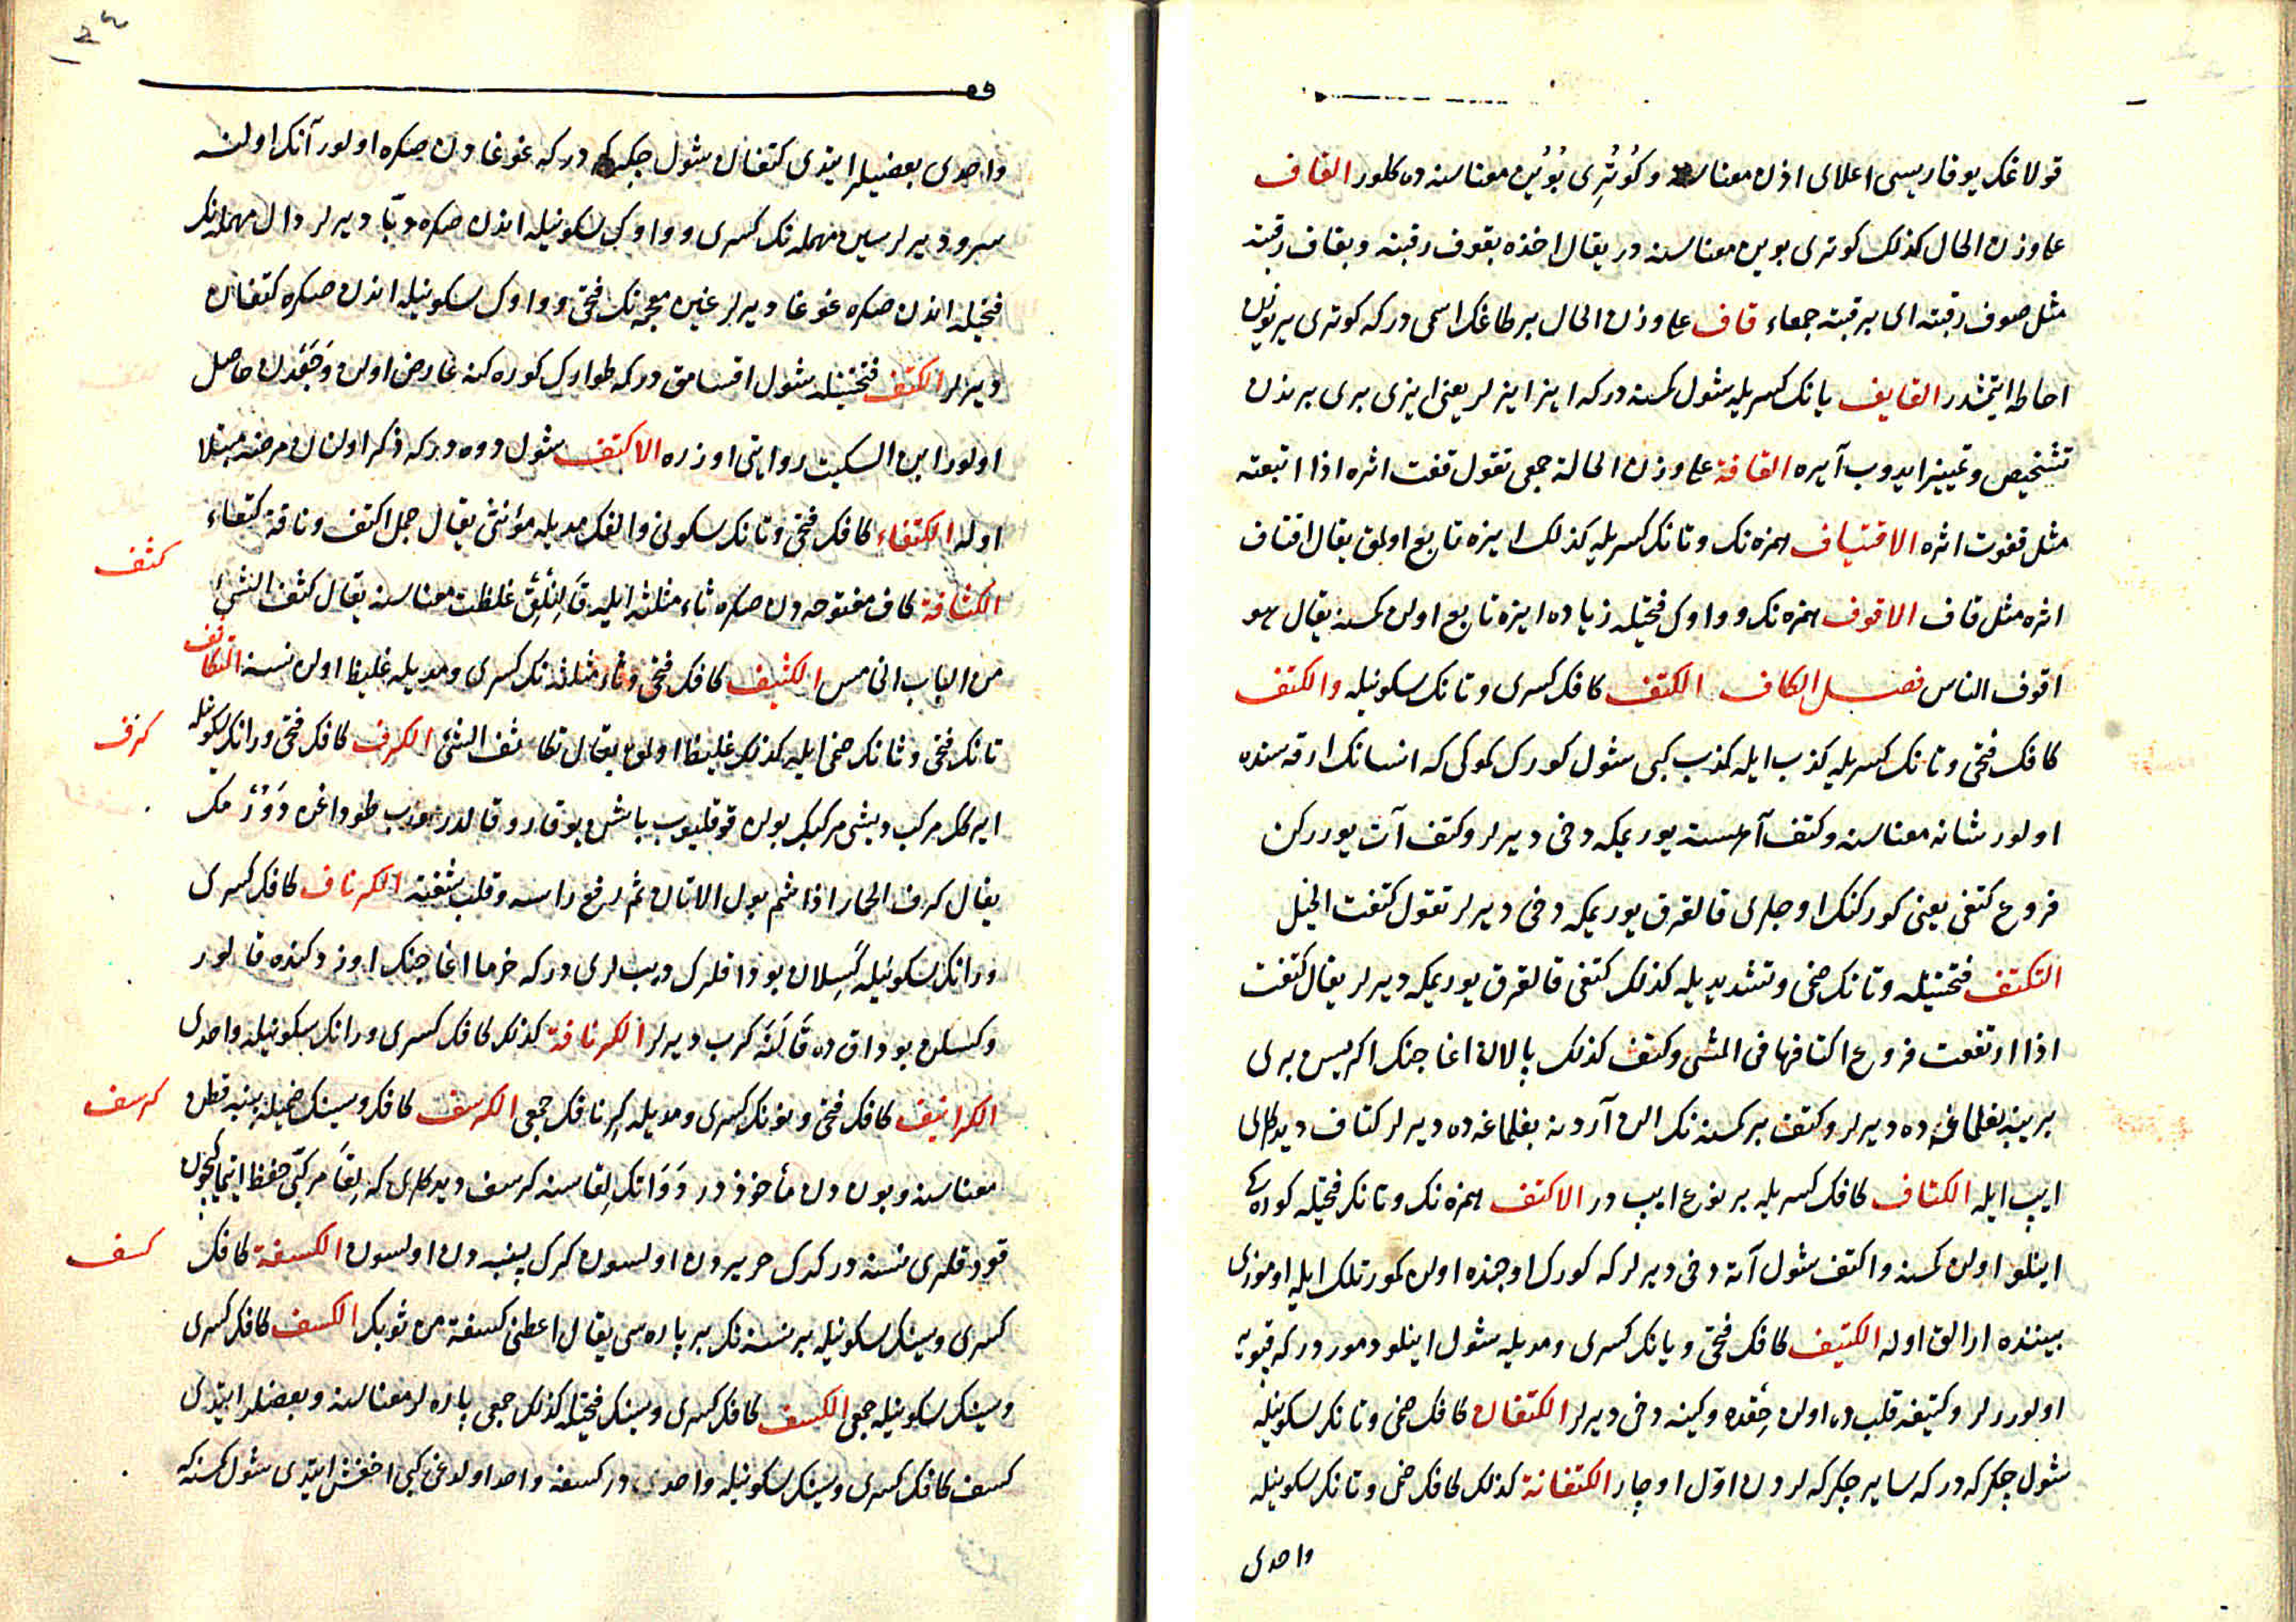 قولاغك يوقاريسى اعلاى اذن معناسنه وكُوتُرِى بُويُن معناسنه ده كلور القاف
على وزن الحال كذلك كوترى بوين معناسنه در يقال اخذه بقوف رقبته وبقاف رقبته
مثل صوف رقبته اى برقبته جمعاء قاف على وزن الحال بر طاغك اسمى در كه كوترى ير يوزين
احاطه ايتمشدر القايف يانك كسريله شول كمسنه در كه ايز ايزلر يعنى ايزى برى برندن
تشخيص وتمييز ايدوب آيره القافة على وزن الحالة جمعى تقول قفت اثره اذا اتبعته
مثل قفوت اثره الاقتياف همزه نك وتانك كسريله كذلك ايزه تابع اولمق يقال اقتاف
اثره مثل قاف الاقوف همزه نك وواوك فتحيله زياده ايزه تابع اولن كمسنه يقال هو
اقوف الناس فصل الكاف الكتف كافك كسرى وتانك سكونيله والكتف
كافك فتحى وتانك كسريله كذب ايله كذب كبى شول كورك كموكى كه انسانك ارقه سنده
اولور شانه معناسنه وكتف آهسته يوريمكه دخى ديرلر وكتف آت يورركن
فروع كتفى يعنى كوركنك اوجلرى قالقرق يوريمكه دخى ديرلر تقول كتفت الخيل
التكتف فتحتيله وتانك ضمى وتشديديله كذلك كتفى قالقرق يوريمكه ديرلر يقال كتفت
اذا ارتفعت فروع اكتافها فى المشى وكتف كذلك پالان اغاجنك اكريسن برى
برينه بغلمافه ده ديرلر وكتف بر كمسنه نك الن آردنه بغلماغه ده ديرلر كتاف ديدكلرى
ايپ ايله الكتاف كافك كسريله بر نوع ايپ در الاكتف همزه نك وتانك فتحيله كوره كى
اينلو اولن كمسنه واكتف شول آته دخى ديرلر كه كورك اوجنده اولن كمورتلك ايله اوموزى
بيننده ارالق اوله الكتيف كافك فتحى ويانك كسرى ومديله شول اينلو دمور در كه قپويه
اولوررلر وكتيفه قلب ده اولن حِقده وكينه دخى ديرلر الكتفان كافك ضمى وتانك سكونيله
شول چكركه در كه ساير چكركه لردن اوّل اوچار الكتفانة كذلك كافك ضمى وتانك سكونيله
واحدى
١٣٤
واحدى بعضيلر ايتدى كتفان شول چكركه در كه غوغادن صكره اولور آنك اولنه
سرو ديرلر سين مهمله نك كسرى وواوك سكونيله اندن صكره دبّا ديرلر دال مهمله نك
فتحيله اندن صكره غوغا ديرلر غين معجمه نك فتحى وواوك سكونيله اندن صكره كتفان
ديرلر الكتف فتحتيله شول اقسامق در كه طوارك كوره كنه عارض اولن وَجَعْدن حاصل
اولور ابن السكيت روايتى اوزره الاكتف شول دوه در كه ذكر اولنان مرضه مبتلا
اوله الكتفاء كافك فتحى وتانك سكونى والفك مديله مؤنثى يقال جمل اكتف وناقة كتفاء
كثف
الكثافة كاف مفتوحه دن صكره ثاء مثلثه ايله قَالِكْلِق غلظت معناسنه يقال كثف الشئ
من الباب الخامس الكثيف كافك فتحى وثاء مثلثه نك كسرى ومديله غليظ اولن نسنه التكاثف
تانك فتحى وثانك ضمى ايله كذلك غليظ اولمق يقال تكاثف الشئ الكرف كافك فتحى ورانك سكونيله
كرف
ايه كلر مركب ديشى مركبك بولن قوقليوب باشن يوقارو قالدروب طوداغن دَوُرْمك
يقال كرف الحمار اذا شم بول الاتان ثم رفع راسه وقلب شفته الكرناف كافك كسرى
ورانك سكونيله كَسِلان بوداقلرك ديبلرى در كه خرما اغاجنك اوزركنده قالور
وكسلن بوداق ده قَالَنَه كرب ديرلر الكرنافة كذلك كافك كسرى ورانك سكونيله واحدى
الكرانيف كافك فتحى ونونك كسرى ومديله كِرنافك جمعى الكرسف كافك وسينك ضميله پنبه قطن
كرسف
معناسنه وبوندن مأخوذ در دَوَاتك لِقاسنه كرسف ديدكلرى كه لِقا مركبى حفظ ايتمك ايچون
قودقلرى نسنه در كرك حريردن اولسون كرك پنبه دن اولسون الكسفة كافك
كسف
كسرى وسينك سكونيله بر نسنه نك بر پاره سى يقال اعطنى كسفة من ثوبك الكسف كافك كسرى
وسينك سكونيله جمعى الكسف كافك كسرى وسينك فتحيله كذلك جمعى پاره لر معناسنه وبعضلر ايتدى
كسف كافك كسرى وسينك سكونيله واحدى در كسفه واحد اولدوغى كبى اخفش ايتدى شول كمسنه كه